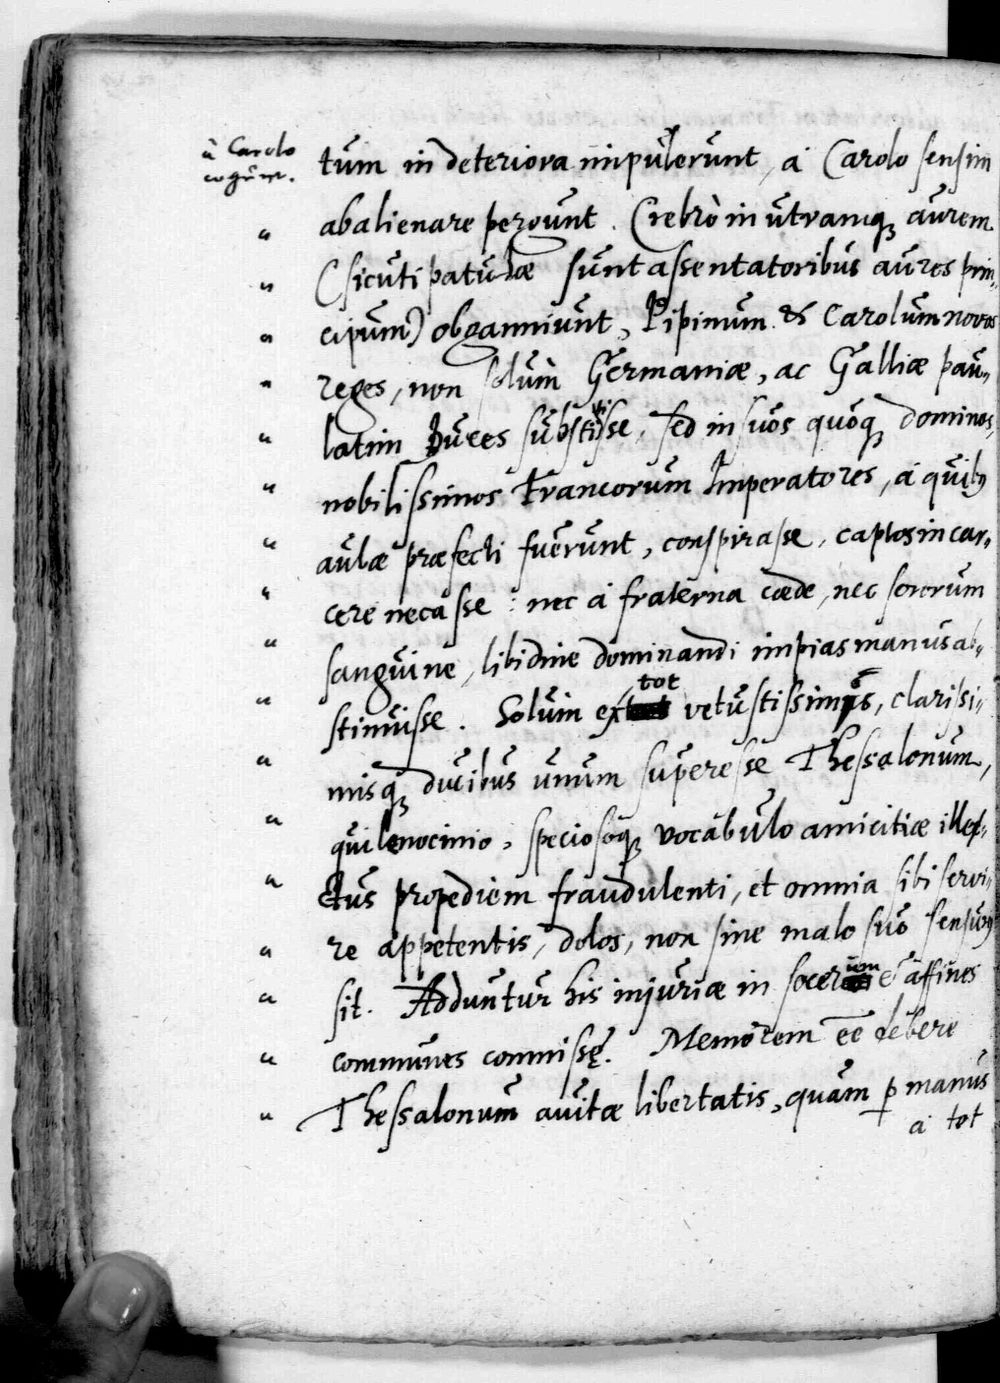 à Carolo
cogunt.
tum in deteriora impulerunt, à Carolo sensim
abalienare pergunt. Crebrò in utramq; aurem
(sicuti patulæ sunt assentatoribus aures prin-
cipum) obganniunt, Pipinum & Carolum novos
reges, non solùm Germaniæ, ac Galliæ pau-
latim Duces substulisse, sed in suos quoq; dominos,
nobilissimos Francorum Imperatores, à quib9
aulæ præfecti fuerunt, conspirasse, captos in car-
cere necasse: nec à fraterna cæde, nec sororum
sanguine, libidine dominandi impias manus ab-
stinuisse. Solum ex tot vetustissimis, clarissi-
misq; ducibus unum superesse Thessalonum,
qui lenocinio, speciosoq; vocabulo amicitiæ illex-
ctus propediem fraudulenti, et omnia sibi servi-
re appetentis, dolos, non sine malo suo sensur9
sit. Adduntur his injuriæ in socerum & affines
communes commissę. Memorem ēē debere
Thessalonum avitæ libertatis, quam p manus
à tot